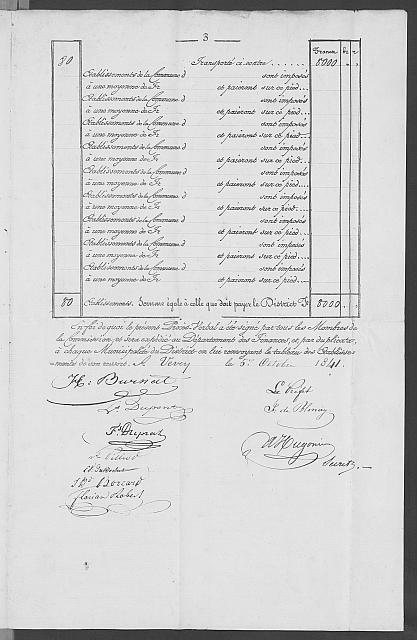 3
Francs
80 Transporté ci-contre . . . . . . 8000
Etablissements de la Commune d sont imposés
à une moyenne de Fr et paieront sur ce pied . . .
Etablissements de la Commune d sont imposés
à une moyenne de Fr et paieront sur ce pied . . .
Etablissements de la Commune d sont imposés
à une moyenne de Fr et paieront sur ce pied . . .
Etablissements de la Commune d sont imposés
à une moyenne de Fr et paieront sur ce pied . . .
Etablissements de la Commune d sont imposés
à une moyenne de Fr et paieront sur ce pied . . .
Etablissements de la Commune d sont imposés
à une moyenne de Fr et paieront sur ce pied . . .
Etablissements de la Commune d sont imposés
à une moyenne de Fr et paieront sur ce pied . . .
Etablissements de la Commune d sont imposés
à une moyenne de Fr et paieront sur ce pied . . .
Etablissements de la Commune d sont imposés
à une moyenne de Fr et paieront sur ce pied . . .
80 Etablissements. Somme égale à celle que doit payer le District Fr 8000
En foi de quoi le présent Procès-Verbal a été signé par tous les Membres de
la Commission, et sera expédié au Département des Finances, et par duplicata,
à chaque Municipalité du District en lui renvoyant le tableau des Etablisse-
ments de son ressort. A Vevey le 5 Octobre 1841.
Le Préfet
Ls Dupont
F. de Blonay
Fs Duprat
Secret.
Florian Robert